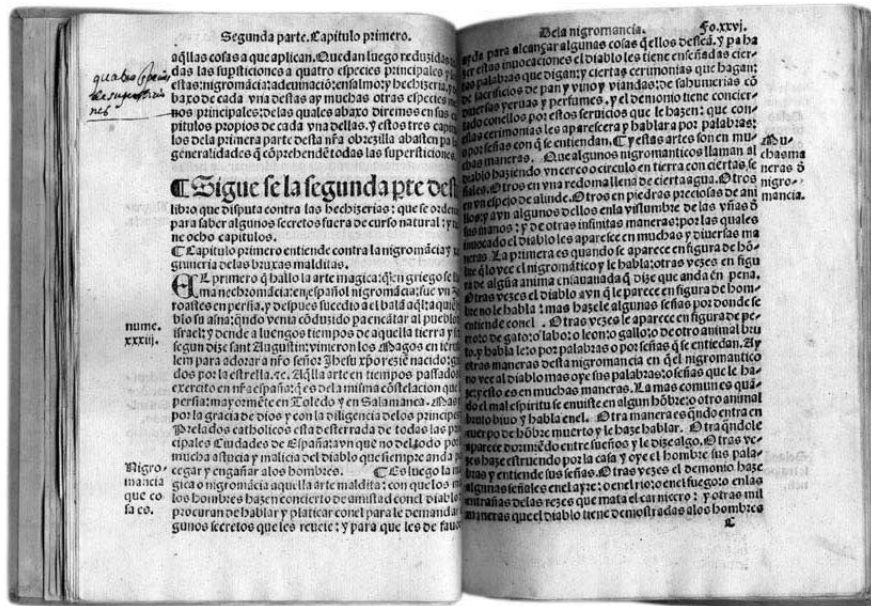 Segunda parte. Capitulo primero.
aq̃llas cosas a que aplican. Quedan luego reduzidas to
das las supsticiones a quatro especies principales y s
estas: nigromãcia: adeuinaciõ: ensalmo: y hechizeria. y d
baxo de cada vna destas ay muchas otras especies me
nos principales: delas quales abaxo diremos en sus ca
pitulos propios de cada vna dellas. y estos tres capitu
los dela primera parte desta nr̃a obrezilla abasten pa la
generalidades q̃ cõprehendẽ todas las supersticiones.
quatro
de supersticio
nes
¶ Sigue se la segunda pte deste
libro que disputa contra las hechizerias: que se ordena
para saber algunos secretos fuera de curso natural: y tie
ne ocho capitulos.
¶ Capitulo primero entiende contra la nigromãcia y x
gumeria delas bruxas malditas.
EL primero q̃ hallo la arte magica: q̃ en griego se lla
ma nechromãcia: en español nigromãcia: fue vn Zo
roastes en persia. y despues sucedio a el balã aq̃l: a quiẽ ha
blo su asna: q̃ndo venia cõduzido pa encãtar al pueblo d
israel: y dende a luengos tiempos de aquella tierra y s
segun dize sant Augustin: vinieron los Magos en ierusa
lem para adorar a nr̃o señor Jhesu xp̃o reziẽ nacido: gui
dos por la estrella. ꝛc. Aq̃lla arte en tiempos passados
exercito en nr̃a españa: q̃ es dela misma cõstelacion que
persia: mayormẽte en Toledo y en Salamanca. Mas
por la gracia de dios y con la diligencia delos principes
Prelados catholicos esta desterrada de todas las prin
cipales Ciudades de España: avn que no del todo por
mucha astucia y malicia del diablo que siempre anda por
cegar y engañar alos hombres. ¶ Es luego la ma
gica o nigromãcia aquella arte maldita: con que los ma
los hombres hazen concierto de amistad conel diablo y
procuran de hablar y platicar conel para le demandar al
gunos secretos que les reuele: y para que les de fauor
nume.
xxxiij.
Nigro-
mancia
que co
sa es.
Dela nigromancia. Fo. xxvj.
ayda para alcançar algunas cosas q̃ ellos dessean. y pa ha
zer estas inuocaciones el diablo les tiene enseñadas cier-
tas palabras que digan: y ciertas cerimonias que hagan:
de sacrificios de pan y vino y viandas: de sahumerias cõ
diuersas yeruas y perfumes. y el demonio tiene concier-
tado conellos por estos seruicios que le hazen: que con
estas cerimonias les aparescera y hablara por palabras:
o por señas con q̃ se entiendan. ¶ y estas artes son en mu-
chas maneras. Que algunos nigromanticos llaman al
diablo haziendo vn cerco o circulo en tierra con ciertas se-
ñales. Otros en vna redoma llena de cierta agua. Otros
en vn espejo de alinde. Otros en piedras preciosas de ani
llos: y avn algunos dellos enla vislumbre de las vñas d̃
sus manos: y de otras infinitas maneras: por las quales
inuocado el diablo les aparesce en muchas y diuersas ma
neras. La primera es quando se aparece en figura de hõ-
bre q̃ lo vee el nigromãtico y le habla: otras vezes en figu
ra de algũa anima ensauanada q̃ dize que anda en pena.
Otras vezes el diablo avn q̃ le parece en figura de hom-
bre no le habla: mas hazele algunas señas por donde se
entiende conel. Otras vezes le aparece en figura de pe-
rro: de gato: o lobo: o leon: o gallo: o de otro animal bru
to. y habla le: o por palabras o por señas q̃ se entiedan. Ay
otras maneras desta nigromancia en q̃ el nigromantico
no vee al diablo mas oye sus palabras: o señas que le ha-
ze: y esto es en muchas maneras. La mas comun es quã-
do el mal espiritu se enuiste en algun hõbre: o otro animal
bruto biuo y habla enel. Otra manera es q̃ndo entra en
cuerpo de hõbre muerto y le haze hablar. Otra q̃ndo le
aparece dormiẽdo entre sueños y le dize algo. Otras ve-
zes haze estruendo por la casa y oye el hombre sus pala-
bras y entiende sus señas. Otras vezes el demonio haze
algunas señales enel ayre: o enel rio: o enel fuego: o enlas
entrañas delas reses que mata el carnicero: y otras mil
maneras que el diablo tiene demostradas alos hombres
c
Mu-
chas ma
neras d̃
nigro-
mancia.